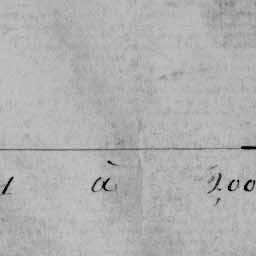 1 à 2,00